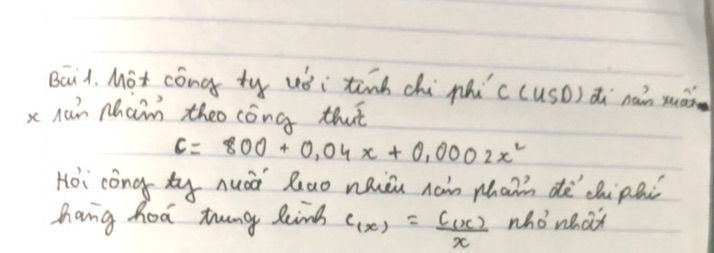 Bài 1. Một công ty ước tính chi phí C (USD) để sản xuất
x sản phẩm theo công thức
C = 800 + 0,04x + 0,0002x²
Hỏi công ty xuất bao nhiêu sản phẩm để chi phí
hàng hoá trung bình C(x) = C(x)/x nhỏ nhất